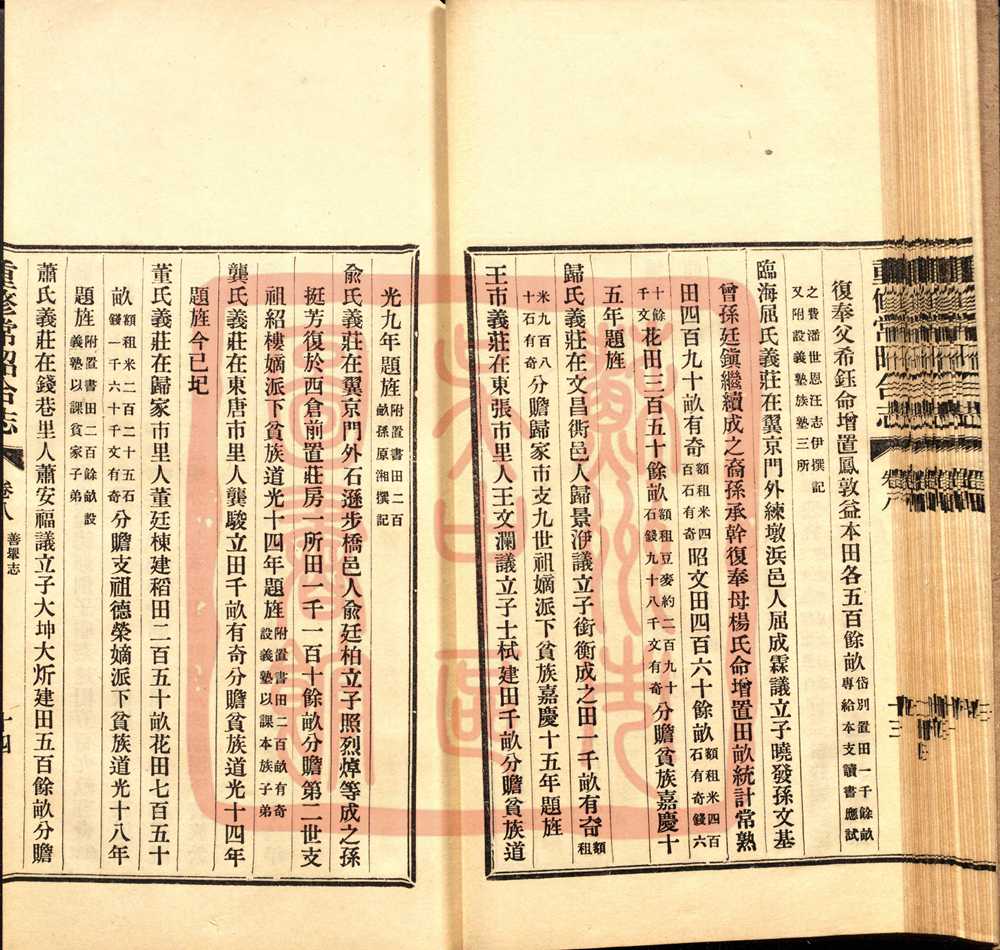 復奉父希鈺命增置鳳敦益本田各五百餘畝岱別置田一千餘畝專給本支讀書應試
之費潘世恩汪志伊撰記又附設義塾族塾三所
臨海屈氏義莊在翼京門外練墩浜邑人屈成霖議立子曉發孫文基
曾孫廷鎮繼續成之裔孫承幹復奉母楊氏命增置田畝統計常熟
田四百九十畝有奇額租米四百石有奇昭文田四百六十餘畝額租米四百石有奇錢六
十餘千文花田三百五十餘畝額租豆麥約二百九十石錢九十八千文有奇分贍貧族嘉慶十
五年題旌
歸氏義莊在文昌衖邑人歸景洢議立子銜衡成之田一千畝有奇額租
米九百八十石有奇分贍歸家市支九世祖嫡派下貧族嘉慶十五年題旌
王市義莊在東張市里人王文瀾議立子士栻建田千畝分贍貧族道
光九年題旌附置書田二百畝孫原湘撰記
俞氏義莊在翼京門外石遜步橋邑人俞廷柏立子照烈焯等成之孫
挺芳復於西倉前置莊房一所田一千一百十餘畝分贍第二世支
祖紹樓嫡派下貧族道光十四年題旌附置書田二百畝有奇設義塾以課本族子弟
龔氏義莊在東唐市里人龔駿立田千畝有奇分贍貧族道光十四年
題旌今已圮
董氏義莊在歸家市里人董廷棟建稻田二百五十畝花田七百五十
畝額租米二百二十五石錢一千六十千文有奇分贍支祖德榮嫡派下貧族道光十八年
題旌附置書田二百餘畝設義塾以課貧家子弟
蕭氏義莊在錢巷里人蕭安福議立子大坤大炘建田五百餘畝分贍
重修常昭合志
卷八
善舉志
十四